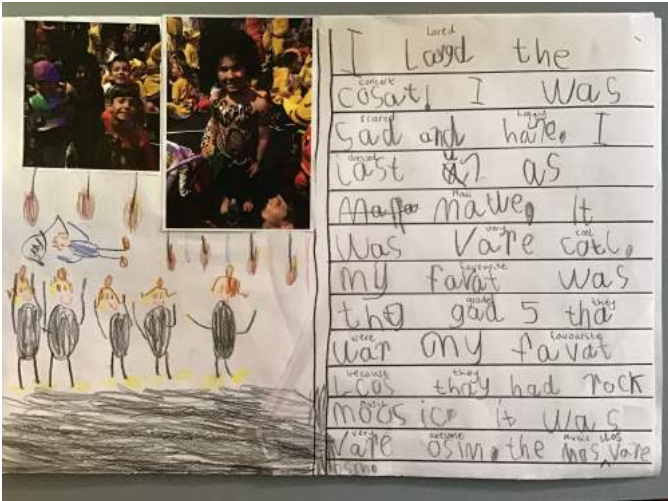 loved
I Lovd the
concert
cosat. I was
scared happy
Sad and hape. I
dressed
Last up as
Maui
mawe. it
very cool
Was Vare cotl.
favourite
my favat was
grade they
the gad 5 tha
were favourite
war my favat
because they
bcos thay had rock
music
moosic. it was
very awesome music was
Vare osim. the mos vare
osim.